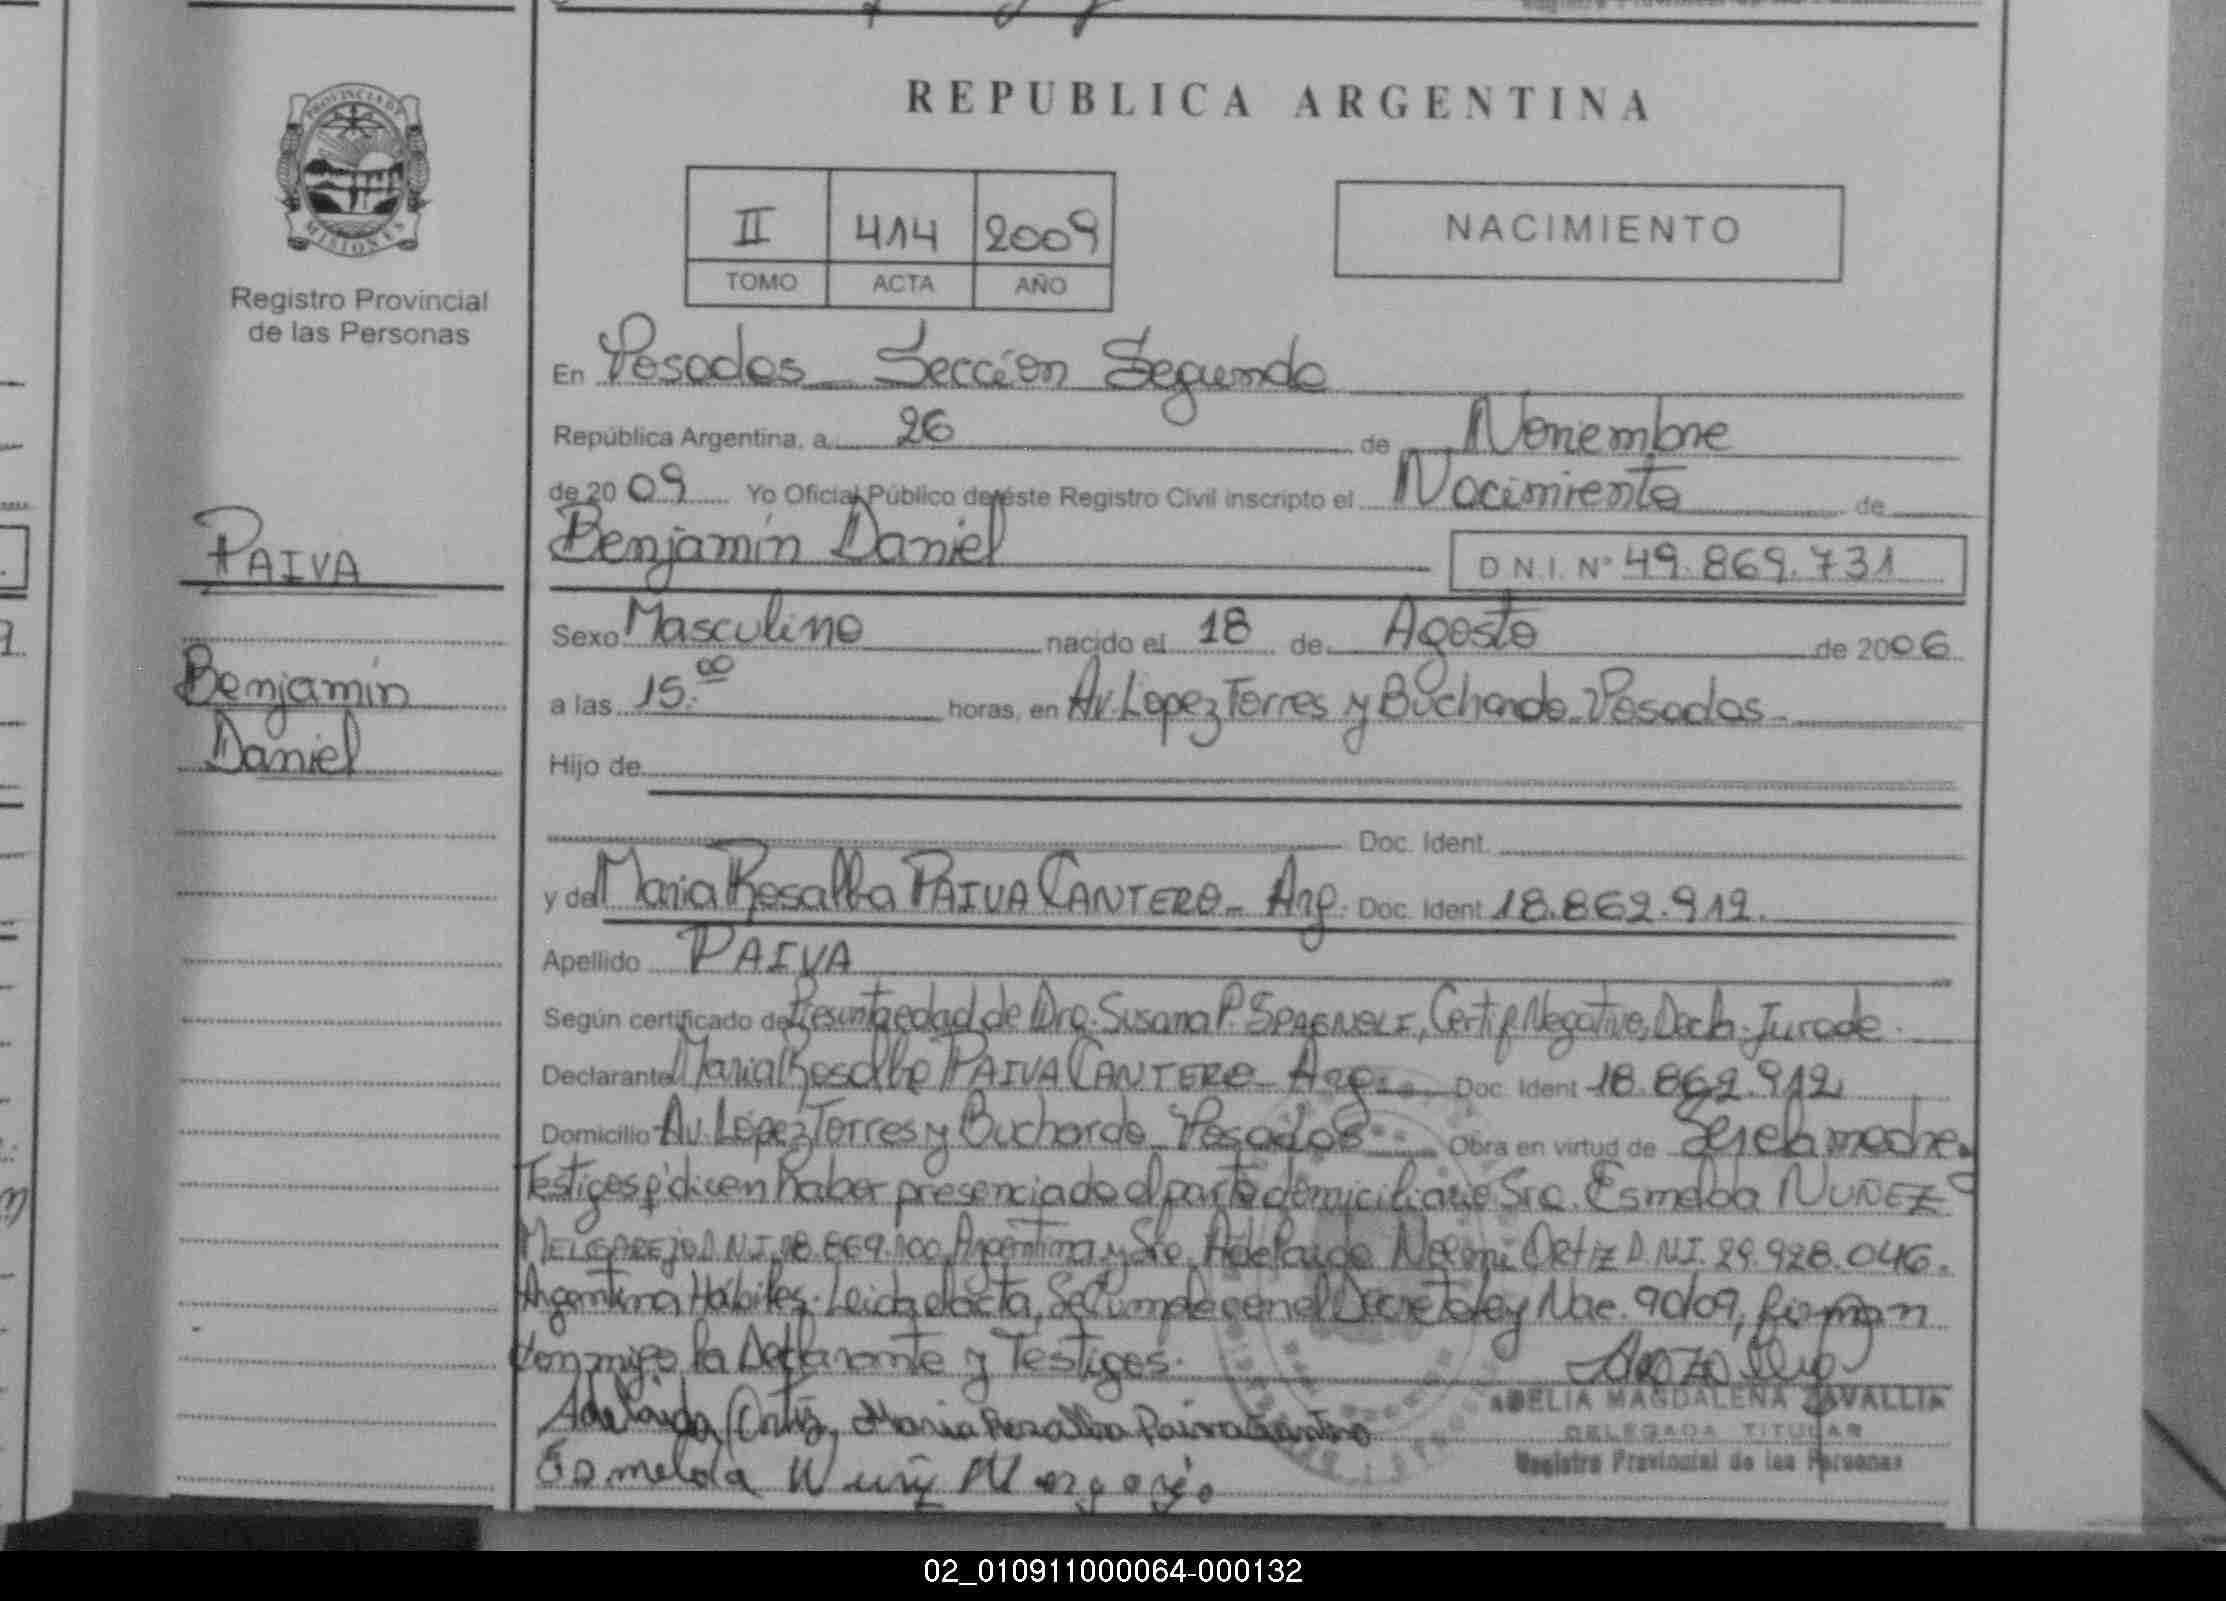 REPUBLICA ARGENTINA
PROVINCIA DE
MISIONES
Registro Provincial
de las Personas
II 414 2009
TOMO ACTA AÑO
NACIMIENTO
En Posadas Sección Segunda
República Argentina, a 26 de Noviembre
de 2009 Yo Oficial Público de éste Registro Civil inscripto el Nacimiento de
Benjamín Daniel D.N.I. Nº 49.869.731
PAIVA
Benjamín
Daniel
Sexo Masculino nacido el 18 de Agosto de 2006
a las 15.00 horas, en Av. Lopez Torres y Buchardo Posadas
Hijo de
Doc. Ident.
y de Maria Rosalba PAIVA CANTERO - Arg. Doc. Ident 18.862.912.
Apellido PAIVA
Según certificado de Presunta edad de Dra. Susana P. SPAGNOLI, Certif. Negativo, Decla. Jurada.
Declarante Maria Rosalba PAIVA CANTERO - Arg. Doc. Ident 18.862.912
Domicilio Av. Lopez Torres y Buchardo Posadas Obra en virtud de Ser la madre.
Testigos q' dicen haber presenciado el parto domiciliario Sra. Esmelda NUÑEZ
MELGAREJO D.N.I. 18.869.100 Argentina y Sra. Adelaida Noemi Ortiz D.N.I. 29.928.046.
Argentina Hábiles. Leida el acta, Se Cumple con el Decreto Ley Nac. 90/09, firman
conmigo la Declarante y Testigos.
Adelaida Ortiz, Maria Rosalba Paiva Cantero
Esmelda
ADELIA MAGDALENA ZAVALLIA
DELEGADA TITULAR
Registro Provincial de las Personas
02_010911000064-000132